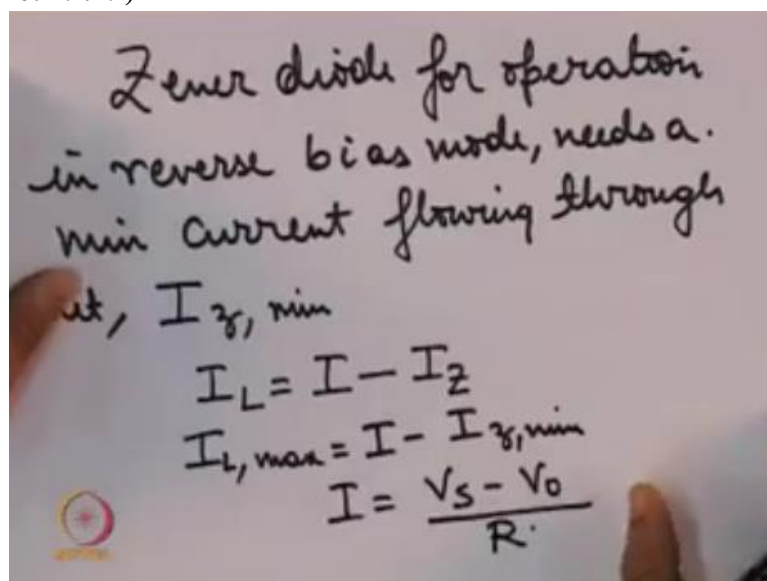 Zener diode for operation
in reverse bias mode, needs a.
min current flowing through
it, I_z, min
I_L = I - I_Z
I_L, max = I - I_z, min
I = (V_S - V_O) / R.